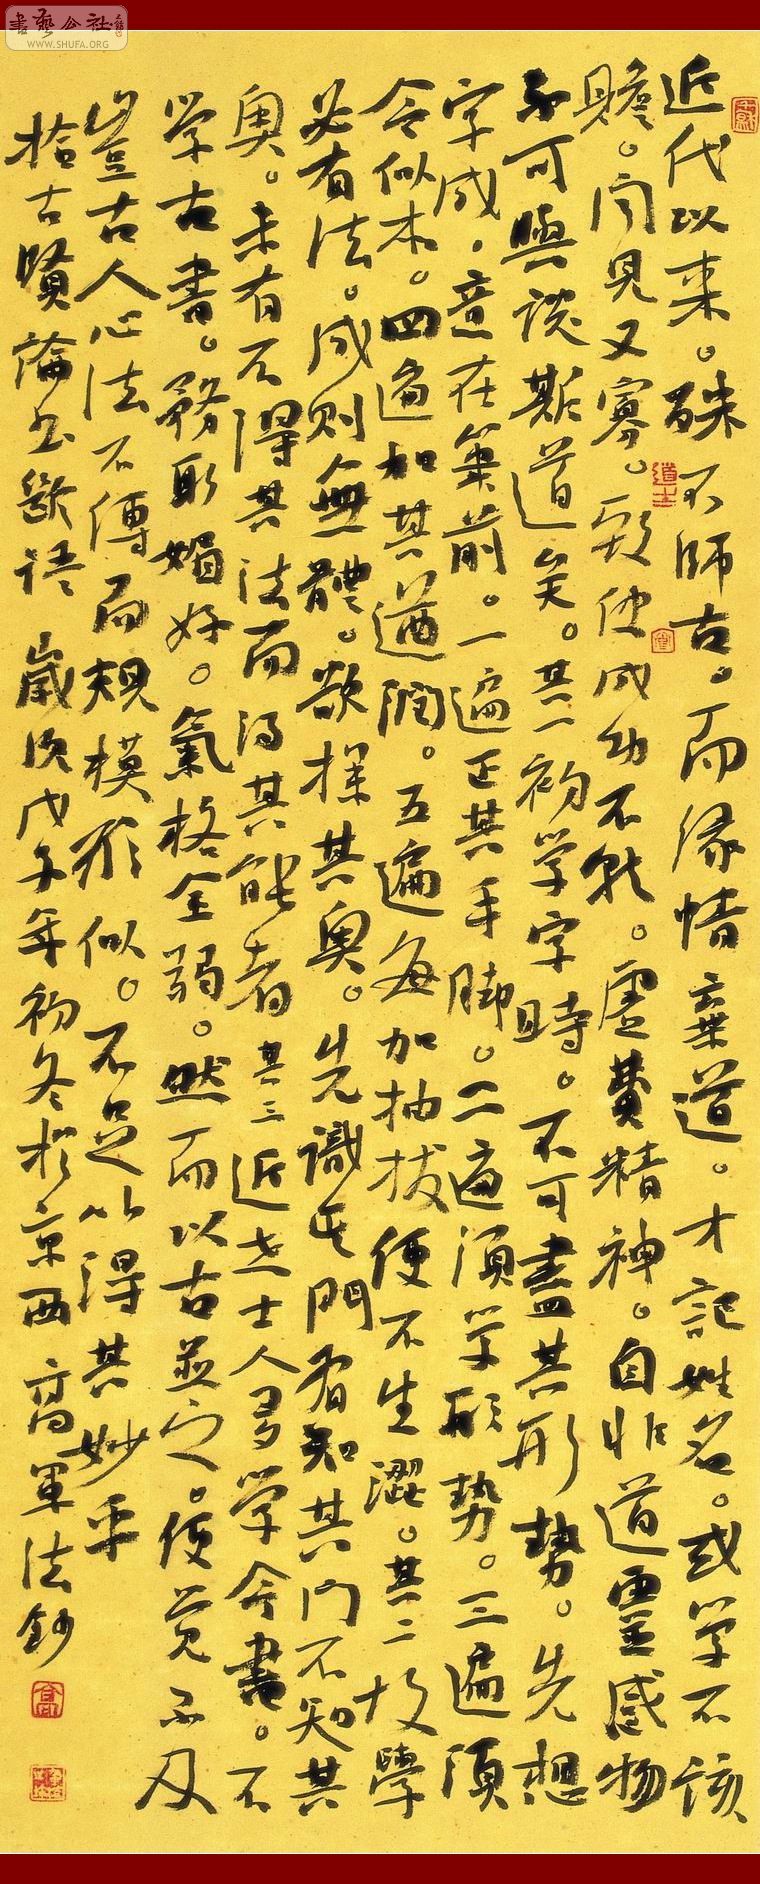 書藝公社
WWW.SHUFA.ORG
近代以来。殊不師古。而缘情棄道。才記姓名。或学不該
贍。闻見又寡。致使成功不就。虚費精神。自非道靈感物
不可與談斯道矣。其一初学字時。不可盡其形势。先想
字成。意在筆前。一遍正其手脚。二遍須学形势。三遍須
令似本。四遍加其遒潤。五遍每加抽拔使不生澀。其二故學
必有法。成则無體。欲探其奥。先識其門有知其门不知其
奥。未有不得其法而得其能者其三近世士人多学今書。不
学古書。務取媚好。氣格全弱。然而以古並之。便觉不及
豈古人心法不傳而規模形似。不足以得其妙乎
拾古賢論書數語歲次戊子年初冬於京西高軍法鈔
道士